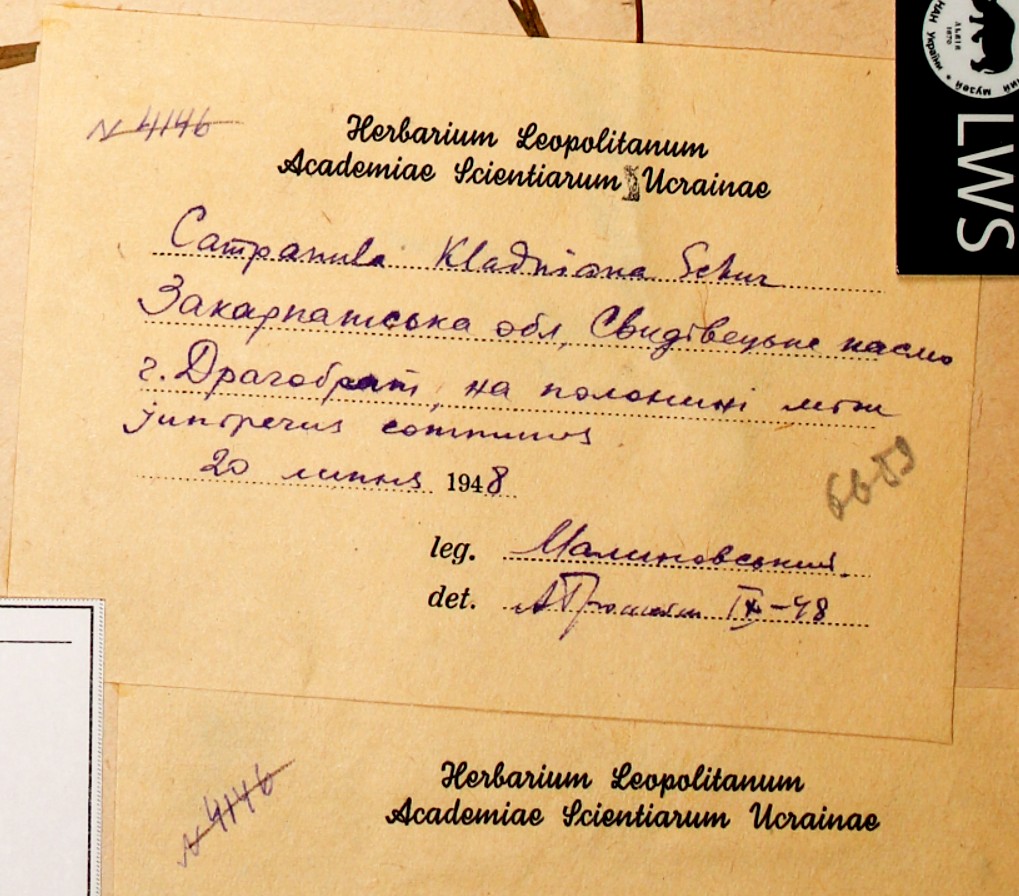 N 4146
Herbarium Leopolitanum
Academiae Scientiarum Ucrainae
Campanula Kladniana Schur
Закарпатська обл, Свидівецьке пасмо
г. Драгобрат, на полонині між
juniperus communis
20 липня 1948
6659
leg. Малиновський
det. IX-48
LWS
НАН України
ЛЬВІВ
1870
музей
N 4146
Herbarium Leopolitanum
Academiae Scientiarum Ucrainae